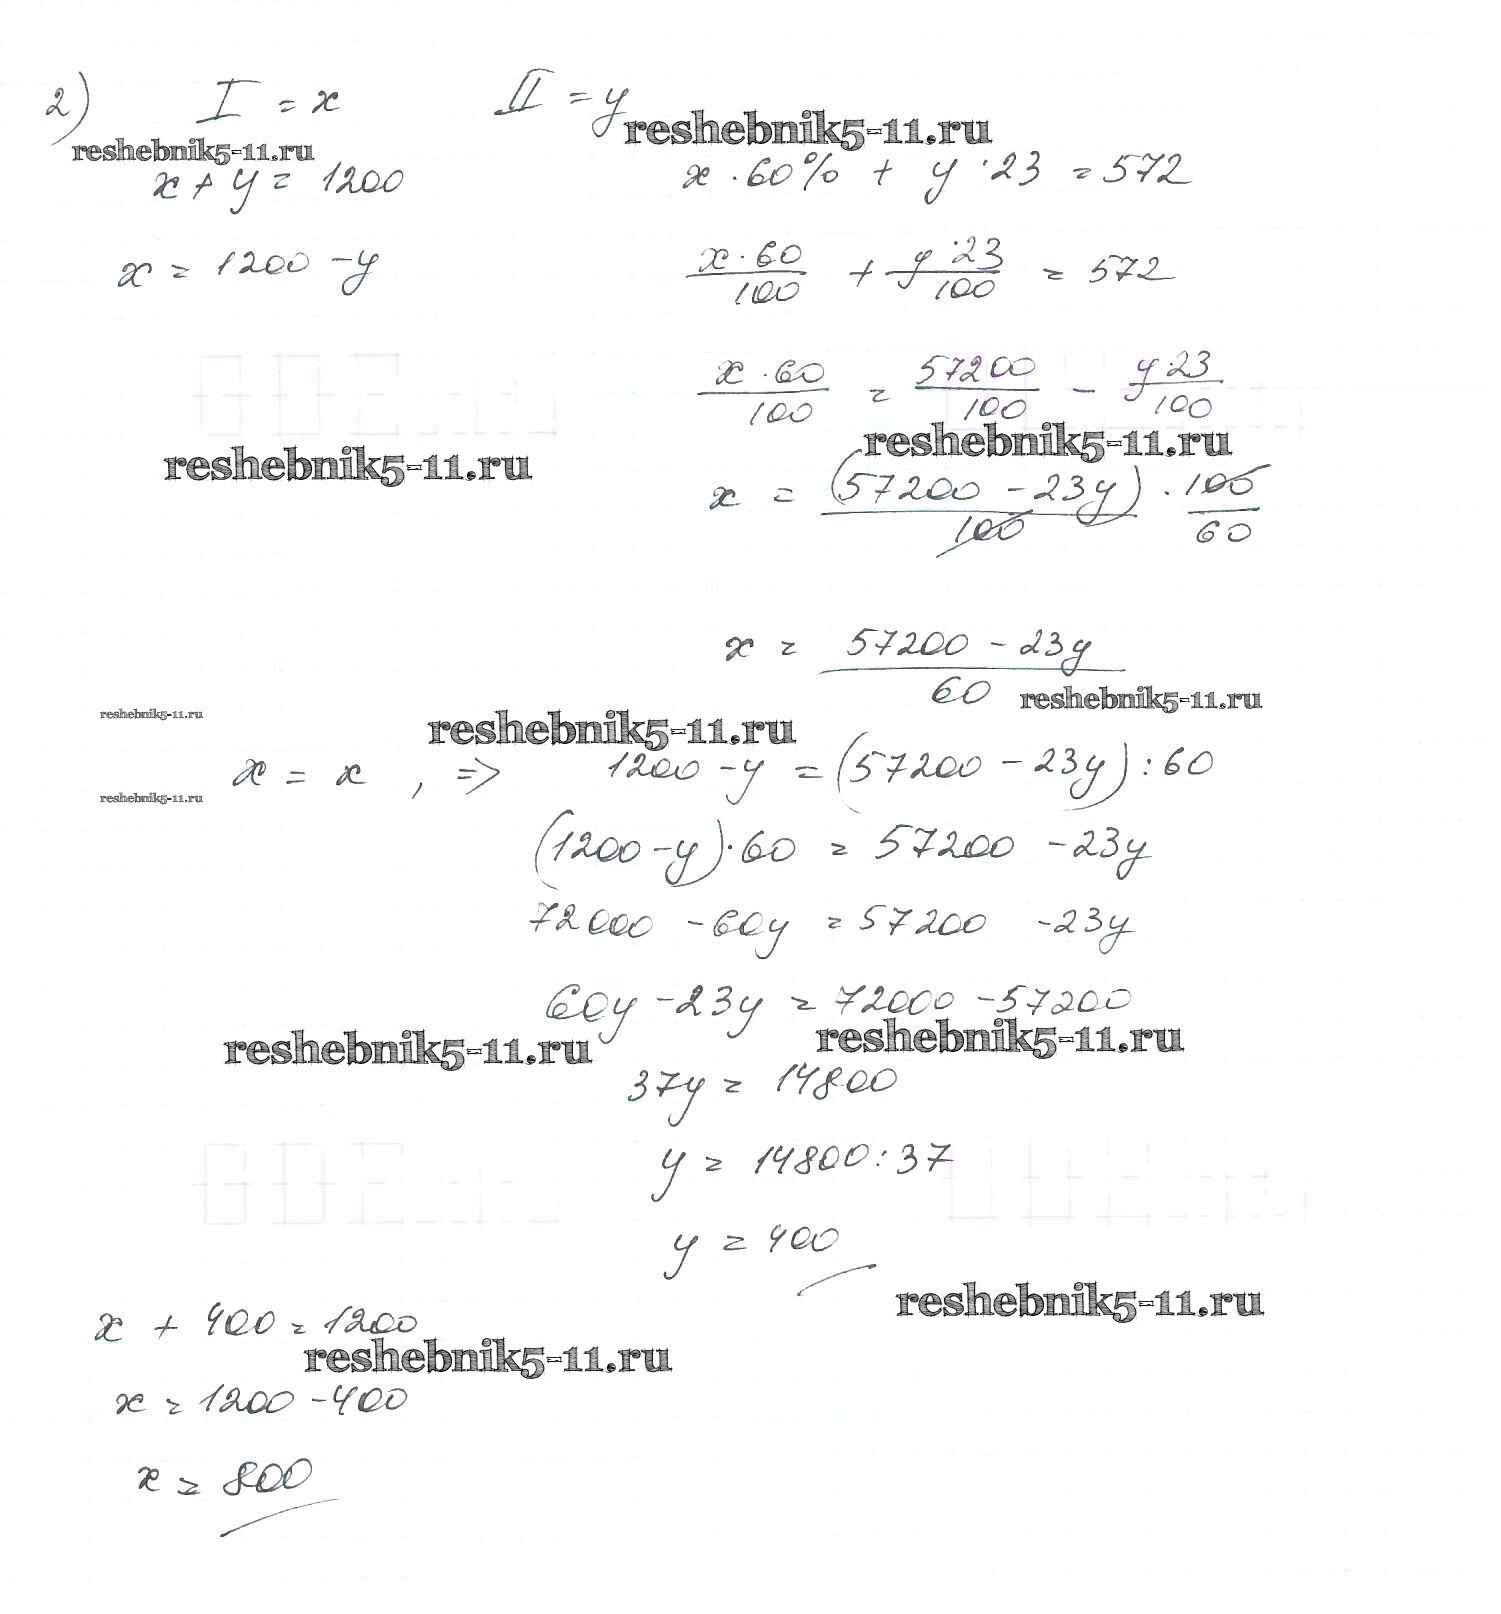 2) I = x II = y
reshebnik5-11.ru
reshebnik5-11.ru
x + y = 1200 x · 60% + y · 23 = 572
x = 1200 - y x · 60 / 100 + y · 23 / 100 = 572
x · 60 / 100 = 57200 / 100 - y · 23 / 100
reshebnik5-11.ru
reshebnik5-11.ru
x = (57200 - 23y) / 100 · 100 / 60
x = 57200 - 23y / 60
reshebnik5-11.ru
reshebnik5-11.ru
reshebnik5-11.ru
x = x , => 1200 - y = (57200 - 23y) : 60
reshebnik5-11.ru
(1200 - y) · 60 = 57200 - 23y
72000 - 60y = 57200 - 23y
60y - 23y = 72000 - 57200
reshebnik5-11.ru
reshebnik5-11.ru
37y = 14800
y = 14800 : 37
y = 400
reshebnik5-11.ru
x + 400 = 1200
reshebnik5-11.ru
x = 1200 - 400
x = 800